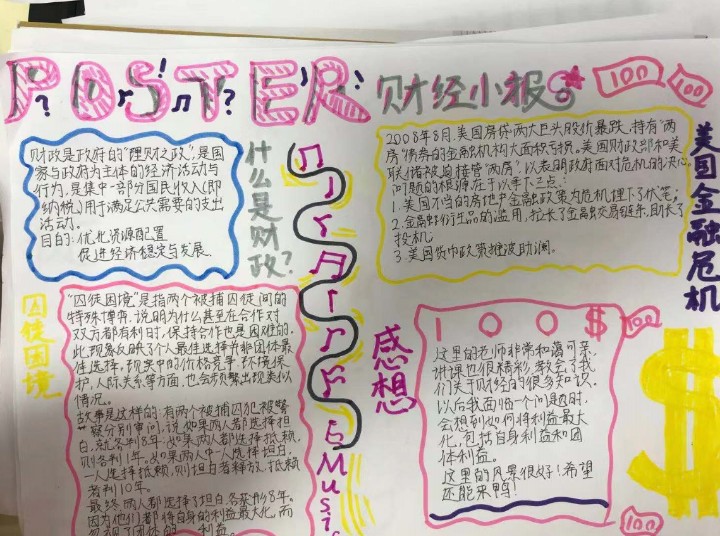 POSTER 财经小报
100 100
什么是财政?
财政是政府的“理财之政”,是国
家与政府为主体的经济活动与
行为,是集中一部分国民收入(即
纳税)用于满足公共需要的支出
活动。
目的:优化资源配置
促进经济稳定与发展.
囚徒困境
“囚徒困境”是指两个被捕囚徒间的
特殊博弈,说明为什么甚至在合作对
双方都有利时,保持合作也是困难的.
此现象反映了个人最佳选择并非团体最
佳选择,现实中的价格竞争、环境保
护、人际关系等方面,也会频繁出现类似
情况。
故事是这样的:有两个被捕囚犯被警
察分别审问,说如果两人都选择坦
白,就各判8年,如果两人都选择抵赖,
则各判1年,如果两人中一人选择坦白,
一人选择抵赖,则坦白者释放,抵赖
者判10年。
最终两人都选择了坦白,各获刑8年.
因为他们都将自身的利益最大化,而
忽视了团体的 利益。
Music
美国金融危机
2008年8月,美国房贷两大巨头股价暴跌,持有“两
房”债券的金融机构大面积亏损。美国财政部和美
联储被迫接管“两房”,以表明政府面对危机的决心.
问题的根源在于以下三点:
1.美国不当的房地产金融政策为危机埋下了伏笔;
2.金融衍生品的滥用,拉长了金融交易链条,助长了
投机;
3.美国货币政策推波助澜。
感想
1 0 0 $ 100
这里的老师非常和蔼可亲,
讲课也很精彩,教会了我
们关于财经的很多知识。
以后我面临一个问题时,
会想到如何将利益最大
化,包括自身利益和团
体利益。
这里的风景很好!希望
还能来鸭!
$
100